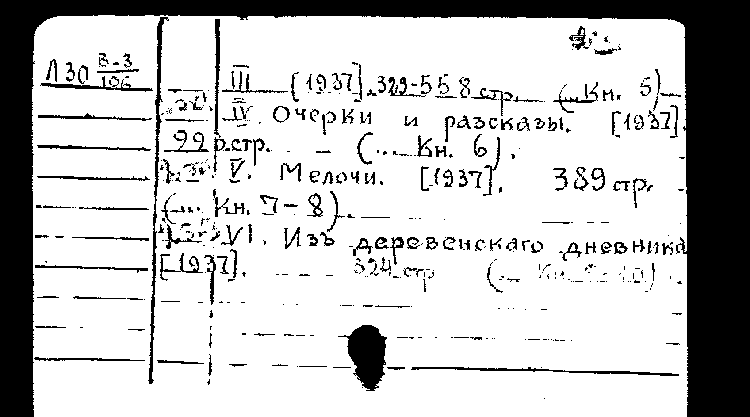 Л30 В-3/106
III [1937]. 329-558 стр. (... Кн. 5)
IV. Очерки и разсказы. [1937].
99 стр. - (... Кн. 6).
V. Мелочи. [1937]. 389 стр.
(... Кн. 7-8).
VI. Изъ деревенскаго дневника
[1937]. 324 стр (... Кн.